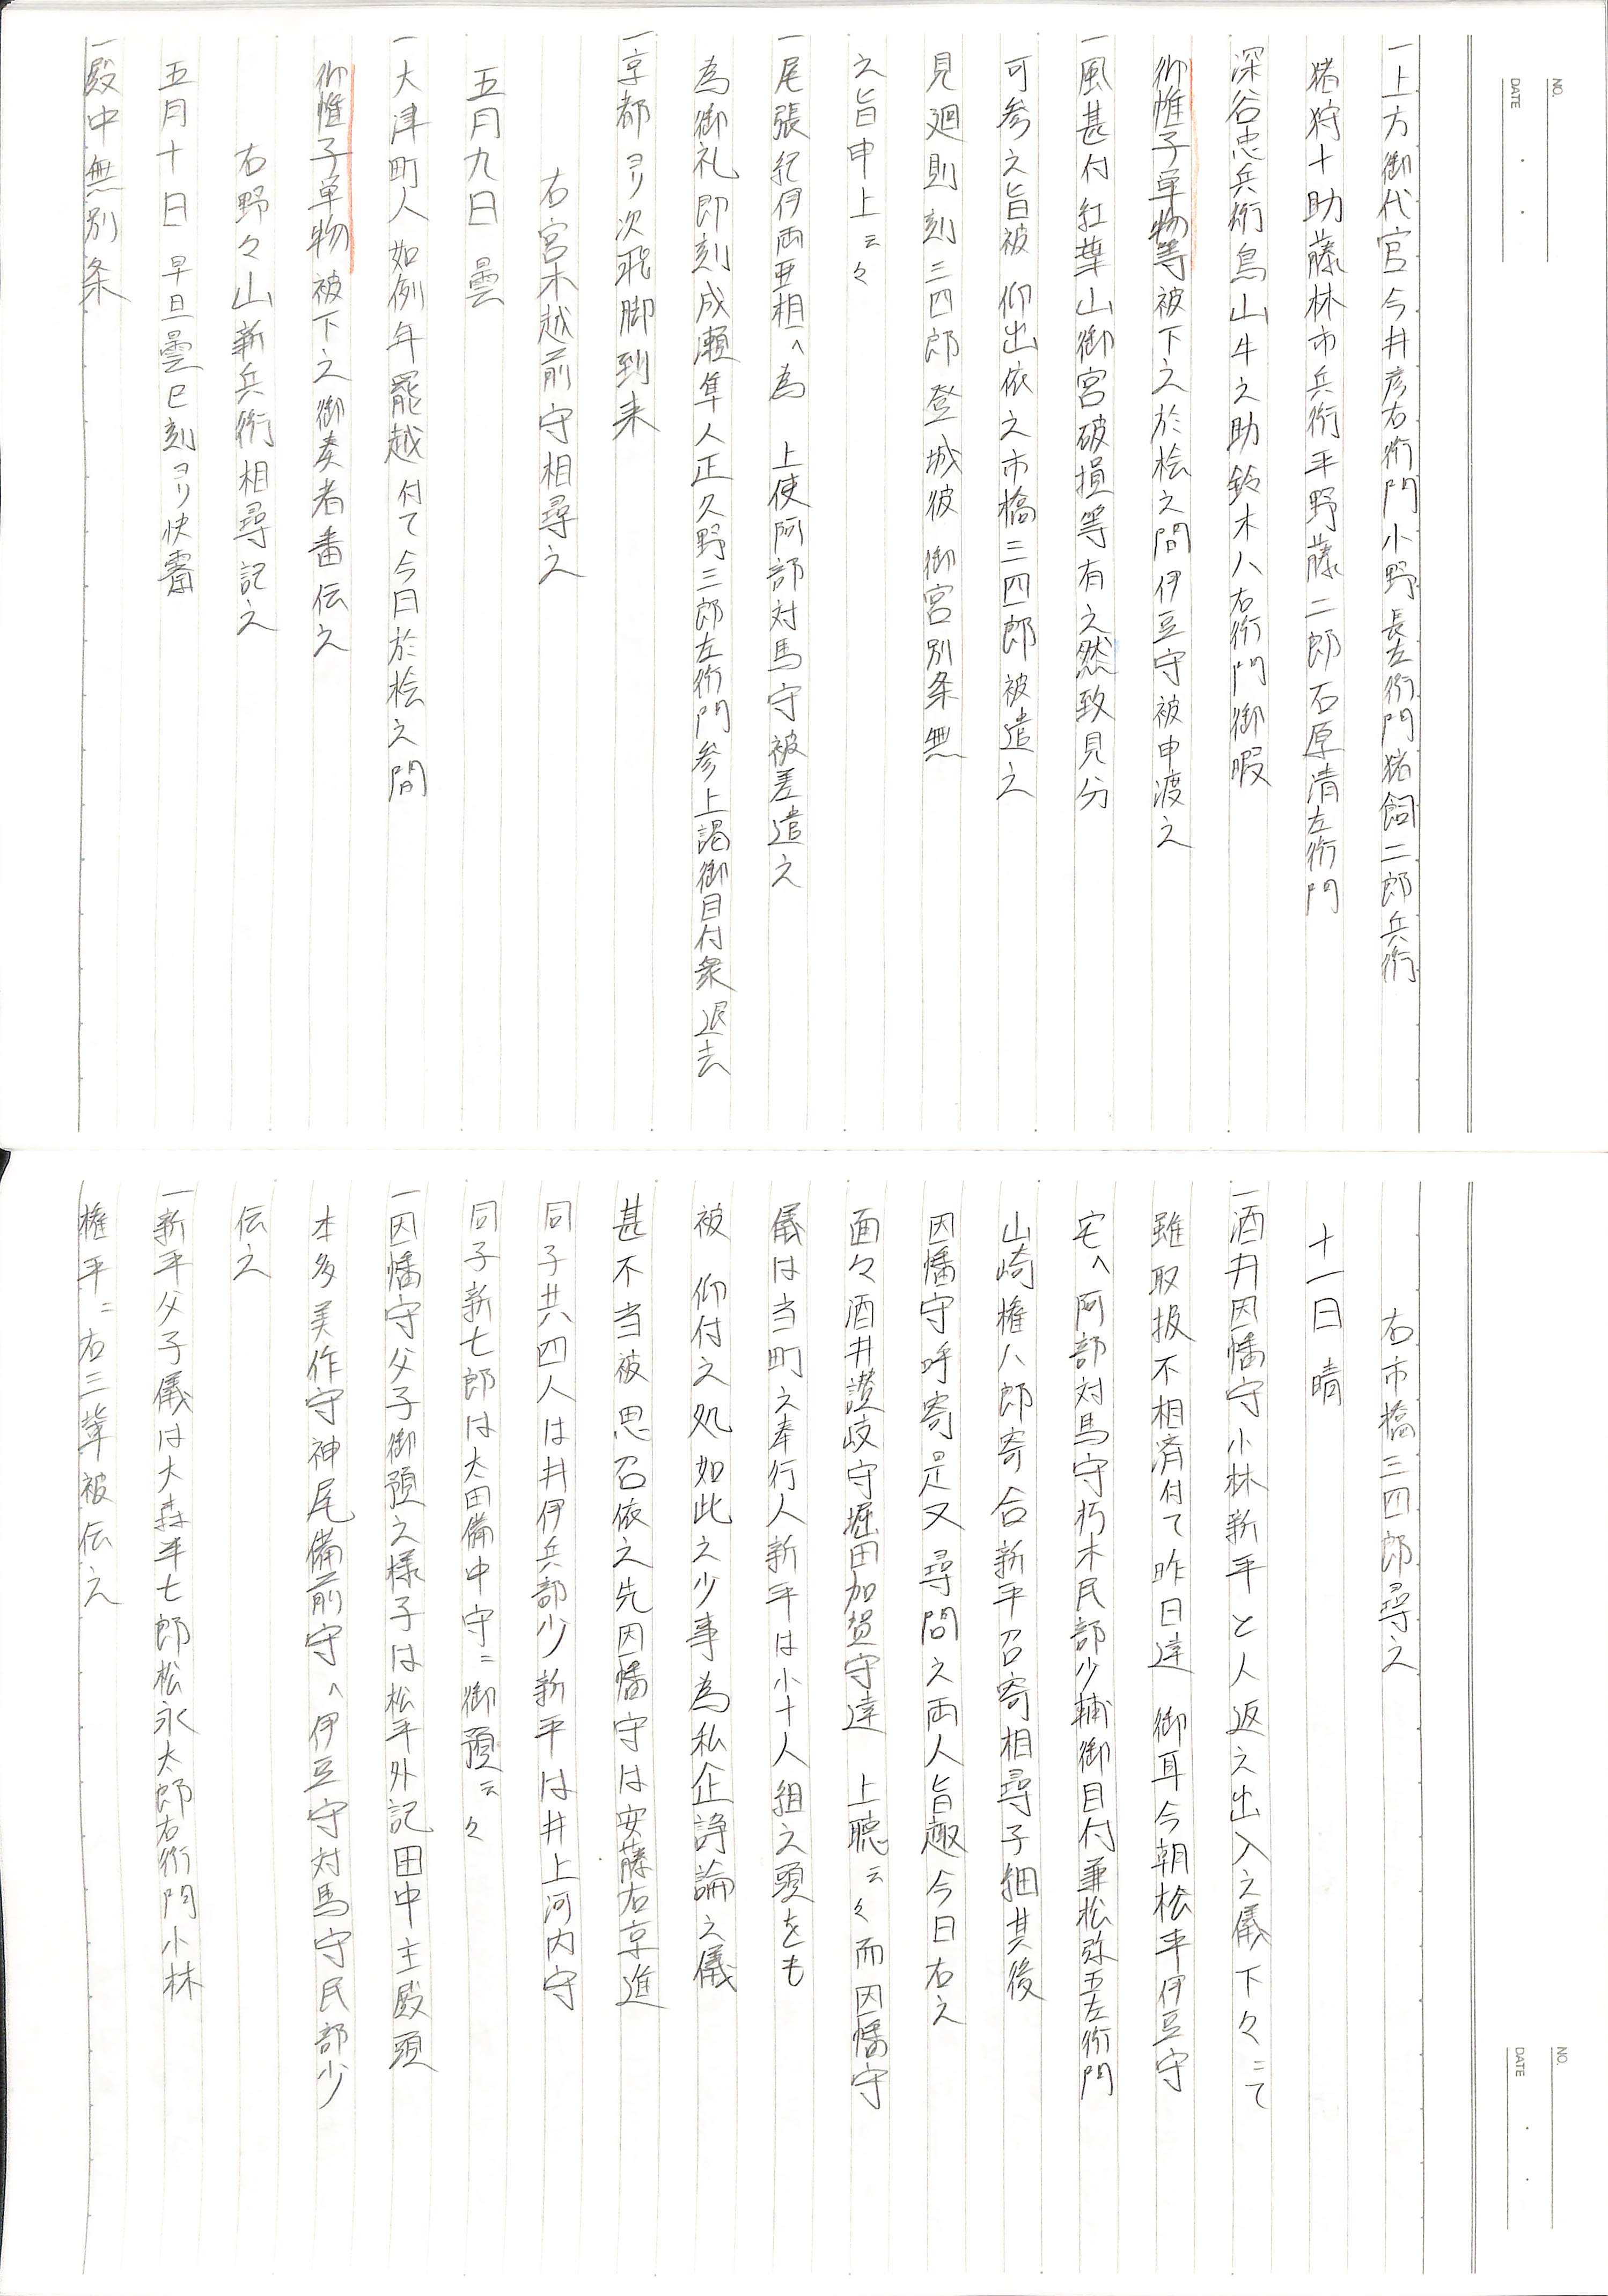 NO.
DATE
一上方御代官今井彦右衛門小野長左衛門猪飼二郎兵衛
猪狩十助藤林市兵衛平野藤二郎石原清左衛門
深谷忠兵衛鳥山牛之助鈴木八右衛門御暇
御帷子単物等被下之於桧之間伊豆守被申渡之
一風甚付紅葉山御宮破損等有之然致見分
可参之旨被 仰出依之市橋三四郎被遣之
見廻則刻三四郎登城彼 御宮別条無
之旨申上云々
一尾張紀伊両亜相へ為 上使阿部対馬守被差遣之
為御礼即刻成瀬隼人正久野三郎左衛門参上謁御目付衆退去
一京都ヨリ次飛脚到来
右宮木越前守相尋之
五月九日 曇
一大津町人如例年罷越付て今日於桧之間
御帷子単物被下之御奏者番伝之
右野々山新兵衛相尋記之
五月十日 早旦曇巳刻ヨリ快霽
一殿中無別条
NO.
DATE
右市橋三四郎尋之
十一日 晴
一酒井因幡守小林新平と人返之出入之儀下々ニて
雖取扱不相済付て昨日達 御耳今朝松平伊豆守
宅へ阿部対馬守朽木民部少輔御目付兼松弥五左衛門
山崎権八郎寄合新平召寄相尋子細其後
因幡守呼寄是又尋問之両人旨趣今日右之
面々酒井讃岐守堀田加賀守達 上聴云々而因幡守
儀は当町之奉行人新平は小十人組之頭をも
被 仰付之処如此之少事為私企諍論之儀
甚不当被思召依之先因幡守は安藤右京進
同子共四人は井伊兵部少新平は井上河内守
同子新七郎は太田備中守ニ御預云々
一因幡守父子御預之様子は松平外記田中主殿頭
本多美作守神尾備前守へ伊豆守対馬守民部少
伝之
一新平父子儀は大森半七郎松永太郎右衛門小林
権平ニ右三輩被伝之